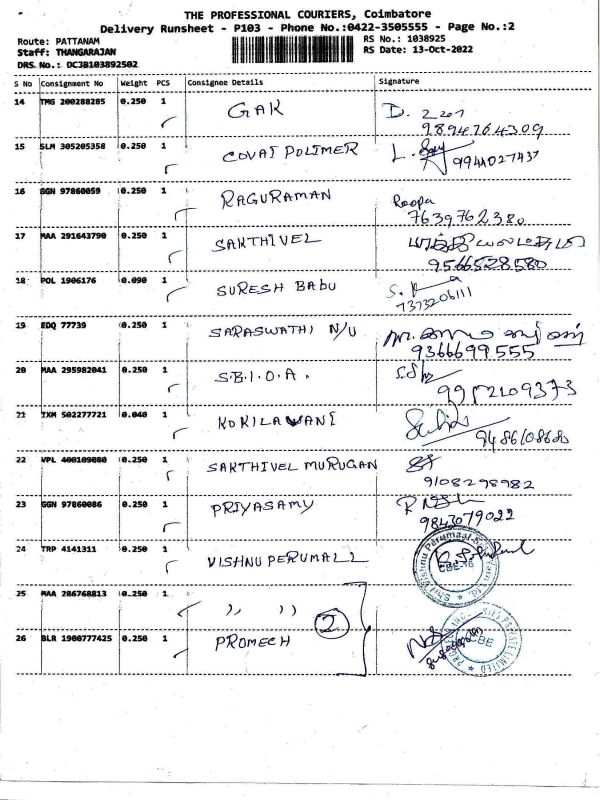 THE PROFESSIONAL COURIERS, Coimbatore
Delivery Runsheet - P103 - Phone No.:0422-3505555 - Page No.:2
Route: PATTANAM
Staff: THANGARAJAN
DRS No.: DCJB103892502
RS No.: 1038925
RS Date: 13-Oct-2022
S No Consignment No Weight PCS Consignee Details Signature
14 TMG 200288285 0.250 1 GAK D.
9894764309
15 SLM 305205358 0.250 1 COVAI POLIMER L. 9944027437
16 GGN 97860059 0.250 1 RAGURAMAN Roopa
7639762380
17 MAA 291643790 0.250 1 SAKTHIVEL
9566528580
18 POL 1906176 0.090 1 SURESH BABU
7373206111
19 EDQ 77739 0.250 1 SARASWATHI N/U
9366699555
20 MAA 295982041 0.250 1 S.B.I.O.A.
9952109373
21 IXM 502277721 0.040 1 KOKILAVANI
9486108680
22 VPL 400109080 0.250 1 SAKTHIVEL MURUGAN
9108298982
23 GGN 97860086 0.250 1 PRIYASAMY
9843079022
24 TRP 4141311 0.250 1 VISHNU PERUMALL
CBE-16
25 MAA 286768813 0.250 1 ,, ,, 2
26 BLR 1900777425 0.250 1 PROMECH
PRIVATE LIMITED
CBE